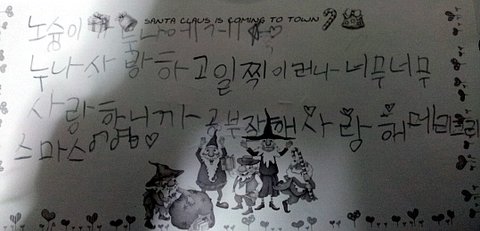 SANTA CLAUS IS COMING TO TOWN
노숭이가 누나에게
누나 사랑하고 일찍 이러나 너무너무
사랑합니까 공부잘해 사랑해 메리크리
스마스